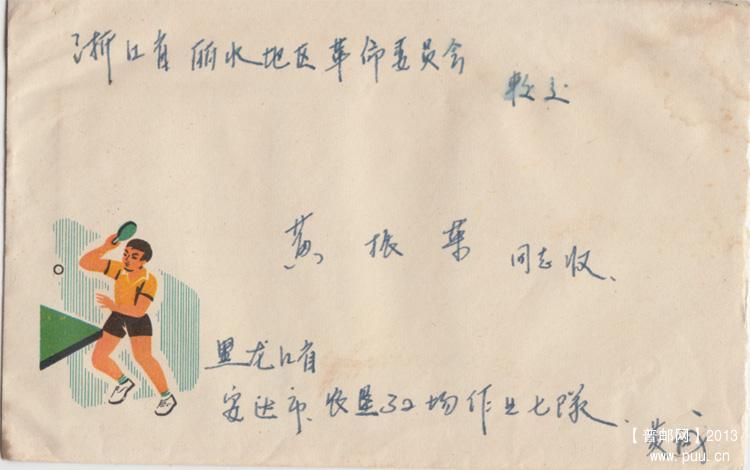 浙江省丽水地区革命委员会
转交
黄振荣 同志收.
黑龙江省
安达市.农垦32场作业七队. 黄
【普邮网】2013
www.puu.cn